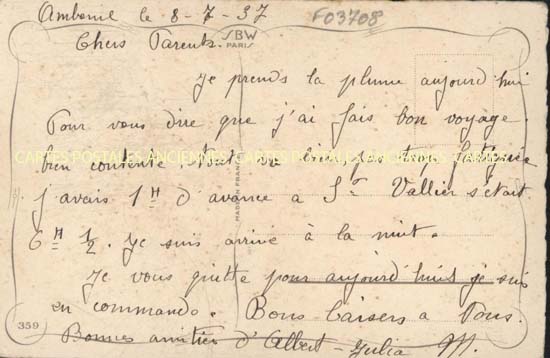 Ambonil le 8-7-37
F03708
Chers Parents.
SBW
PARIS
Je prends la plume aujourd hui
Pour vous dire que j'ai fais bon voyage.
CARTES POSTALES ANCIENNES CARTES POSTALES ANCIENNES CARTES
bien contente. tout va bien pas trop fatiguée
j'avais 1H d'avance à St Vallier s'était
6H 1/2. Je suis arrivé à la nuit.
Je vous quitte pour aujourd'hui je suis
en commando. Bons baisers a Tous.
Bonnes amitiés d'Albert - Julia M.
MADE IN FRANCE
359